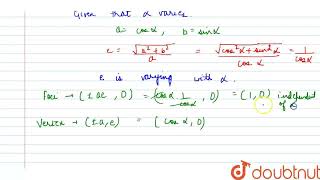 Given that α varies
a = cosα, b = sinα
e = √(a² + b²) / a = √(cos²α + sin²α) / cosα = 1 / cosα
e is varying with α.
Foci → (±ae, 0) = (cosα · 1/cosα, 0) = (1, 0) independent
of
Vertex → (±a, e) = ( cosα, 0)
doubtnut